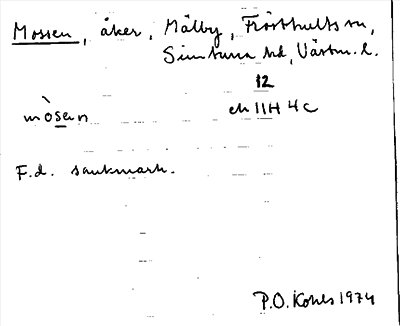 Mossen, åker, Mälby, Frösthults sn,
Simtuna hd, Västm. l.
12
mòsen ek 11H 4c
F.d. sankmark.
P.O. Kohls 1974